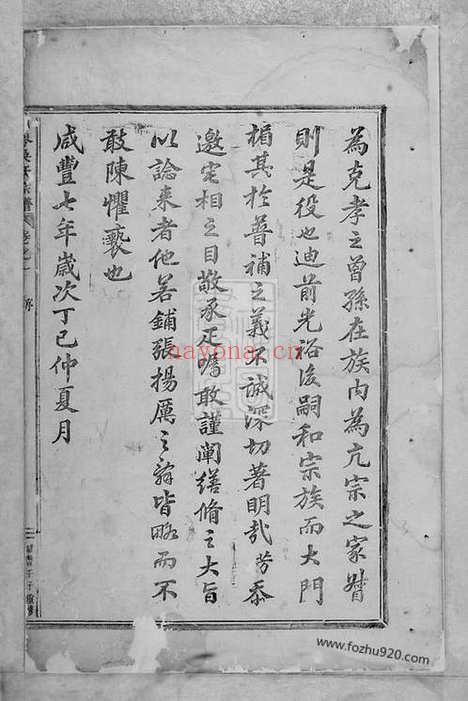 為克孝之曾孫在族內為亢宗之家督
則是役也迪前光裕後嗣和宗族而大門
楣其於普補之義不誠深切著明哉芳忝
邀宅相之目敬承疋囑敢謹闡繕脩之大旨
以諗来者他若鋪張揚厲之辭皆略而不
敢陳懼褻也
咸豐七年歲次丁巳仲夏月
序
nayona.cn
www.fozhu920.com